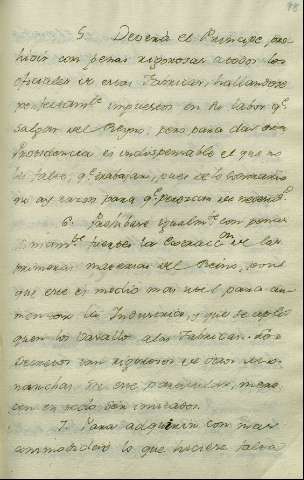 5. Deverà el Principe, pro
hivir con penas rigorosas a todos los
oficiales de esas Fabricas, hallandose
perfectamte. impuestos en su labor qe.
salgan del Reyno; pero para dar esta
Providencia es indispensable el que no
les falte, qe. trabajar, pues de lo contrario
no ay razon para qe. perezcan de
6. Prohibirse igualmte. con penas
fuertes la Extraccon. de las
primeras materias del Reino, por
que ese es medio mas util para au
mentar la Industria, y que se
quen los Vasallos a las Fabricas. Los
Decretos tan rigorosos de otros Mo
narchas en ese particular, mere
cen en todo ser imitados.
7. Para adquirir con mas
commodidad lo que hiciere falta